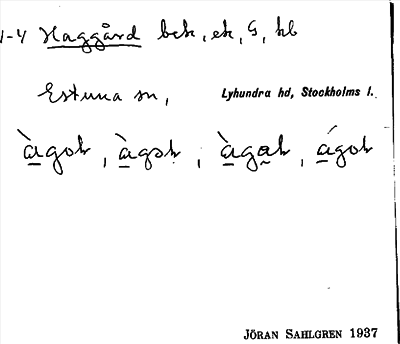 1-4 Haggård bck, ek, G, hb
Estuna sn, Lyhundra hd, Stockholms l.
àgok, àgɔk, àgak, ágok
JÖRAN SAHLGREN 1937